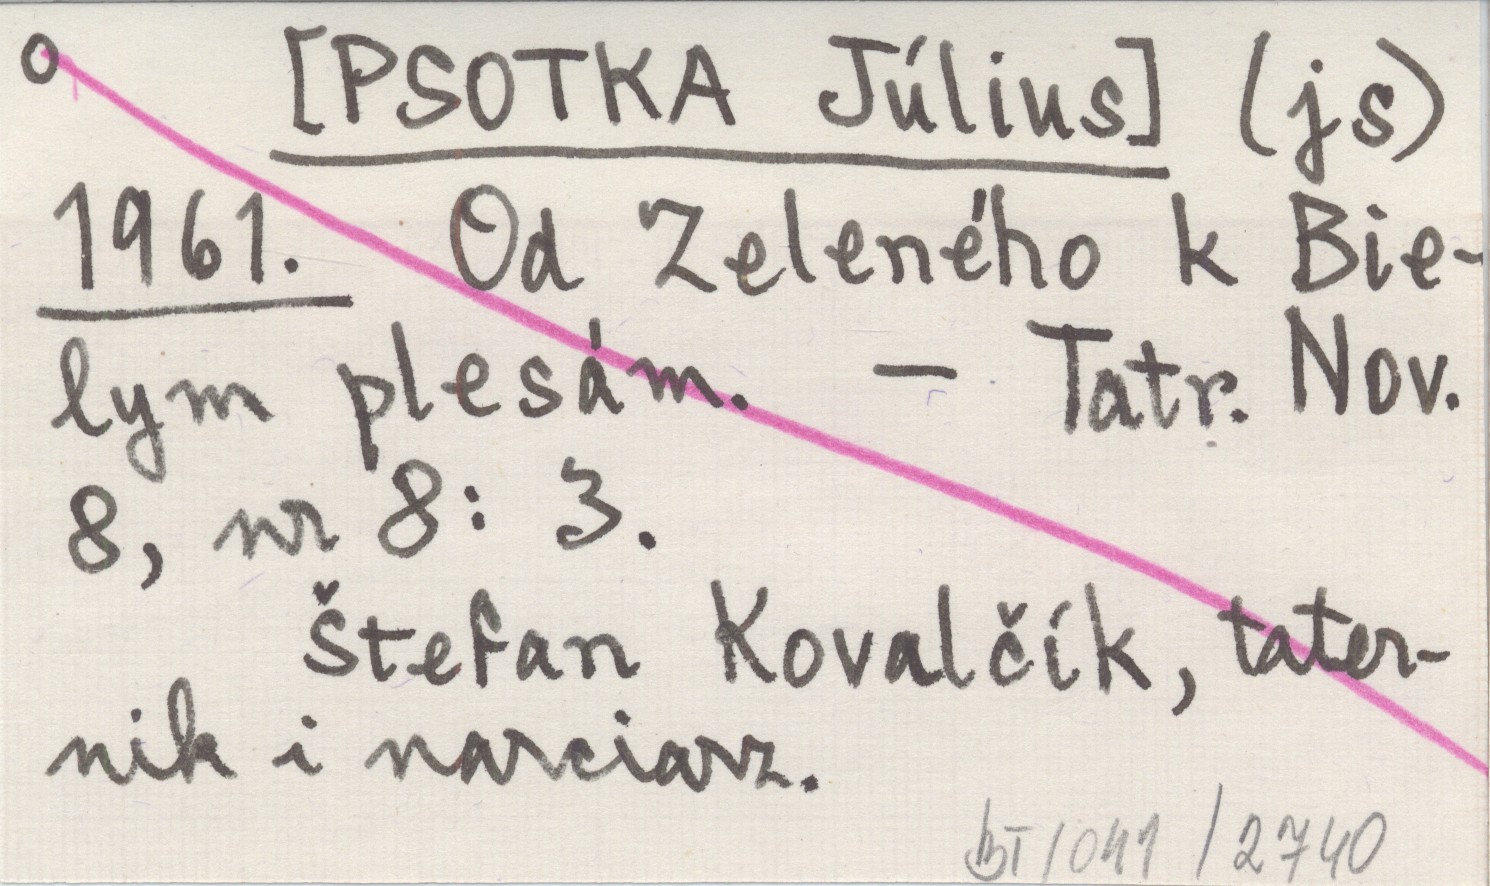 o [PSOTKA Július] (js)
1961. Od Zeleného k Bie-
lym plesám. – Tatr. Nov.
8, nr 8: 3.
Štefan Kovalčík, tater-
nik i narciarz.
BT/041/2740